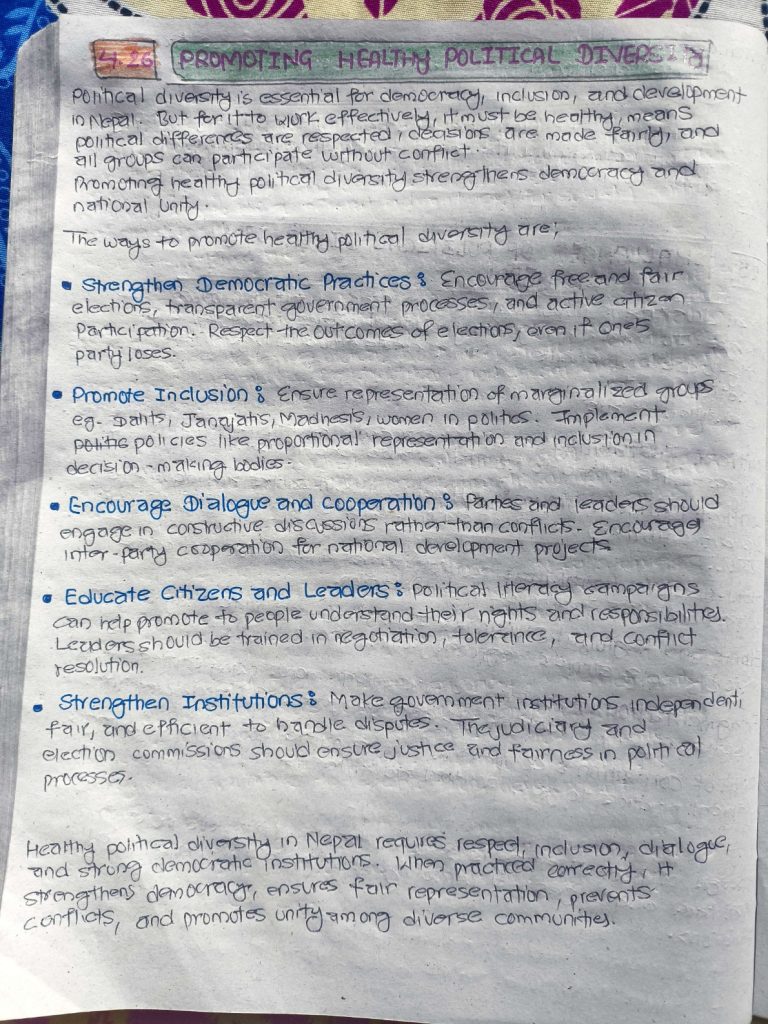 4.26 PROMOTING HEALTHY POLITICAL DIVERSITY
Political diversity is essential for democracy, inclusion, and development
in Nepal. But for it to work effectively, it must be healthy, means
political differences are respected, decisions are made fairly, and
all groups can participate without conflict.
Promoting healthy political diversity strengthens democracy and
national unity.
The ways to promote healthy political diversity are;
• Strengthen Democratic Practices: Encourage free and fair
elections, transparent government processes, and active citizen
Participation. Respect the outcomes of elections, even if one's
party loses.
• Promote Inclusion: Ensure representation of marginalized groups
eg. Dalits, Janajatis, Madhesis, women in politics. Implement
politic policies like proportional representation and inclusion in
decision-making bodies.
• Encourage Dialogue and cooperation: Parties and leaders should
engage in constructive discussions rather than conflicts. Encourage
inter-party cooperation for national development projects
• Educate Citizens and Leaders: Political literacy campaigns
can help promote to people understand their rights and responsibilities.
Leaders should be trained in negotiation, tolerance, and conflict
resolution.
• Strengthen Institutions: Make government institutions independent,
fair, and efficient to handle disputes. The judiciary and
election commissions should ensure justice and fairness in political
processes.
Healthy political diversity in Nepal requires respect, inclusion, dialogue,
and strong democratic institutions. When practiced correctly, it
strengthens democracy, ensures fair representation, prevents
conflicts, and promotes unity among diverse communities.